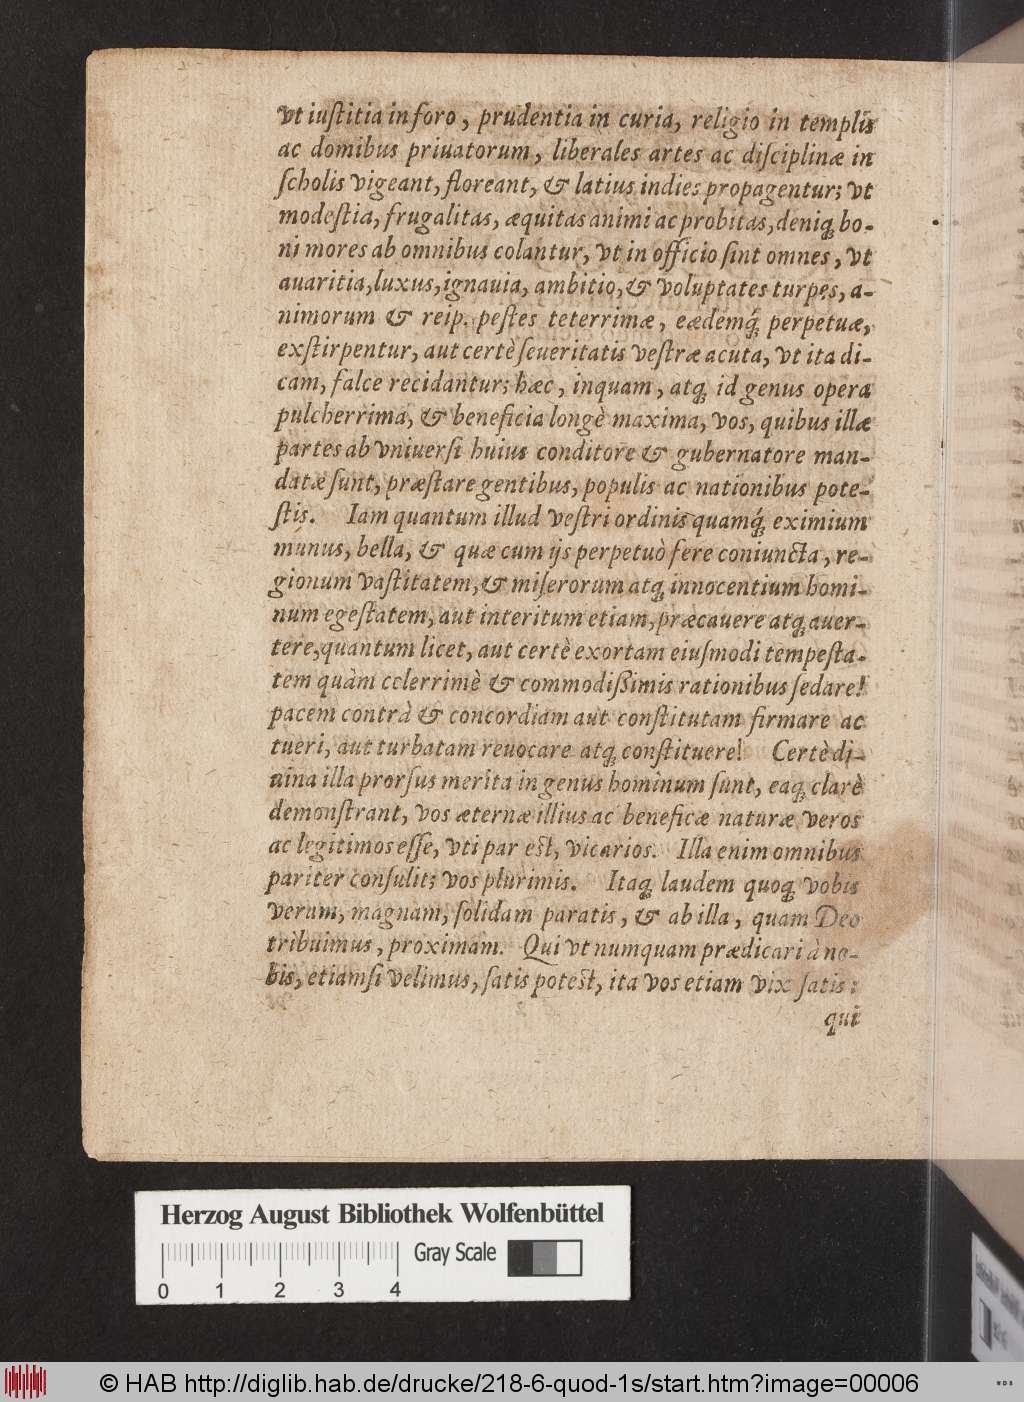 vt iuſtitia in foro, prudentia in curia, religio in templis
ac domibus priuatorum, liberales artes ac diſciplinæ in
ſcholis vigeant, floreant, & latius indies propagentur; vt
modeſtia, frugalitas, æquitas animi ac probitas, deniq́; bo-
ni mores ab omnibus colantur, vt in officio ſint omnes, vt
auaritia, luxus, ignauia, ambitio, & voluptates turpes, a-
nimorum & reip. peſtes teterrimæ, eædemq́; perpetuæ,
exſtirpentur, aut certè ſeueritatis veſtræ acuta, vt ita di-
cam, falce recidantur; hæc, inquam, atq; id genus opera
pulcherrima, & beneficia longè maxima, vos, quibus illæ
partes ab vniuerſi huius conditore & gubernatore man-
datæ ſunt, præſtare gentibus, populis ac nationibus pote-
ſtis. Iam quantum illud veſtri ordinis quamq́; eximium
munus, bella, & quæ cum ijs perpetuò fere coniuncta, re-
gionum vaſtitatem, & miſerorum atq; innocentium homi-
num egeſtatem, aut interitum etiam, præcauere atq; auer-
tere, quantum licet, aut certè exortam eiuſmodi tempeſta-
tem quàm celerrimè & commodiſſimis rationibus ſedare!
pacem contrà & concordiam aut conſtitutam firmare ac
tueri, aut turbatam reuocare atq; conſtituere! Certè di-
uina illa prorſus merita in genus hominum ſunt, eaq; clarè
demonſtrant, vos æternæ illius ac beneficæ naturæ veros
ac legitimos eſſe, vti par est, vicarios. Illa enim omnibus
pariter conſulit; vos plurimis. Itaq; laudem quoq; vobis
veram, magnam, ſolidam paratis, & ab illa, quam Deo
tribuimus, proximam. Qui vt numquam prædicari à no-
bis, etiamſi velimus, ſatis potest, ita vos etiam vix ſatis:
qui
Herzog August Bibliothek Wolfenbüttel
Gray Scale
0 1 2 3 4
© HAB http://diglib.hab.de/drucke/218-6-quod-1s/start.htm?image=00006